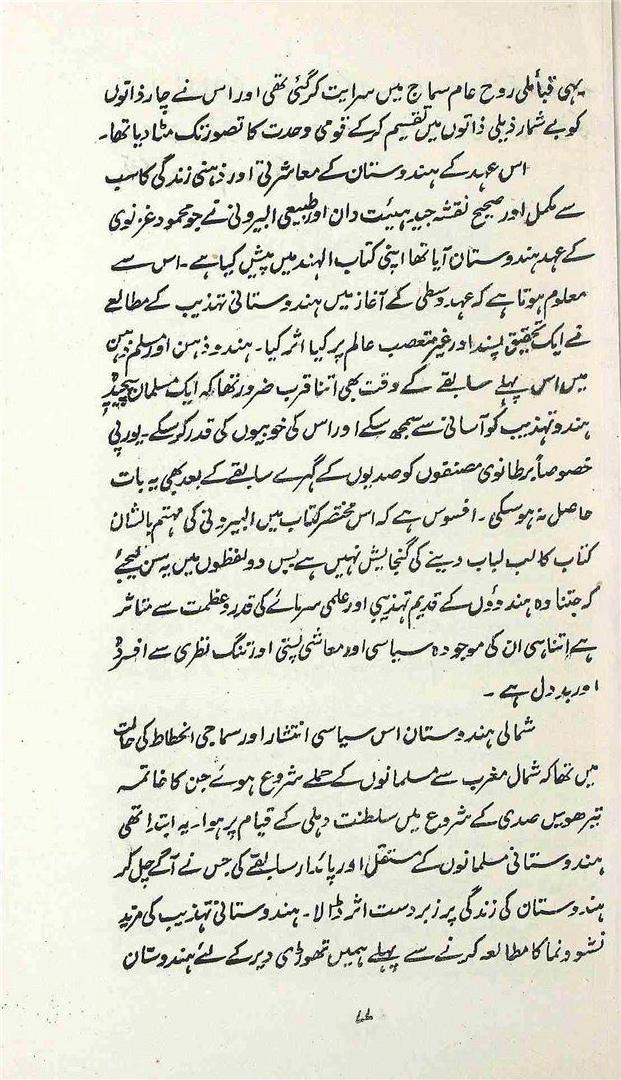 یہی قبائلی روح عام سماج میں سرایت کر گئی تھی اور اس نے چار ذاتوں
کو بے شمار ذیلی ذاتوں میں تقسیم کر کے قومی وحدت کا تصور تک مٹا دیا تھا۔
اس عہد کے ہندوستان کے معاشرتی اور ذہنی زندگی کا سب
سے مکمل اور صحیح نقشہ جید ہیئت دان اور طبیعی البیرونی نے جو محمود غزنوی
کے عہد ہندوستان آیا تھا اپنی کتاب الہند میں پیش کیا ہے۔ اس سے
معلوم ہوتا ہے کہ عہد وسطی کے آغاز میں ہندوستانی تہذیب کے مطالعے
نے ایک تحقیق پسند اور غیر متعصب عالم پر کیا اثر کیا۔ ہندو ذہن اور مسلم ذہن
میں اس پہلے سابقے کے وقت بھی اتنا قرب ضرور تھا کہ ایک مسلمان پیچیدہ
ہندو تہذیب کو آسانی سے سمجھ سکے اور اس کی خوبیوں کی قدر کر سکے۔ یورپی
خصوصاً برطانوی مصنفوں کو صدیوں کے گہرے سابقے کے بعد بھی یہ بات
حاصل نہ ہو سکی۔ افسوس ہے کہ اس مختصر کتاب میں البیرونی کی مہتم بالشان
کتاب کا لب لباب دینے کی گنجایش نہیں ہے بس دو لفظوں میں یہ سن لیجیے
کہ جتنا وہ ہندوؤں کے قدیم تہذیبی اور علمی سرمائے کی قدر و عظمت سے متاثر
ہے اتنا ہی ان کی موجودہ سیاسی اور معاشی پستی اور تنگ نظری سے افسردہ
اور بد دل ہے۔
شمالی ہندوستان اس سیاسی انتشار اور سماجی انحطاط کی حالت
میں تھا کہ شمال مغرب سے مسلمانوں کے حملے شروع ہوئے جن کا خاتمہ
تیرھویں صدی کے شروع میں سلطنت دہلی کے قیام پر ہوا۔ یہ ابتدا تھی
ہندوستانی مسلمانوں کے مستقل اور پائدار سابقے کی جس نے آگے چل کر
ہندوستان کی زندگی پر زبردست اثر ڈالا۔ ہندوستانی تہذیب کی مزید
نشو و نما کا مطالعہ کرنے سے پہلے ہمیں تھوڑی دیر کے لئے ہندوستان